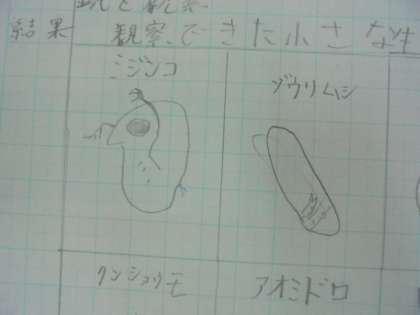 観察
結果 観察できた小さな生
ミジンコ
ゾウリムシ
クンショウモ
アオミドロ